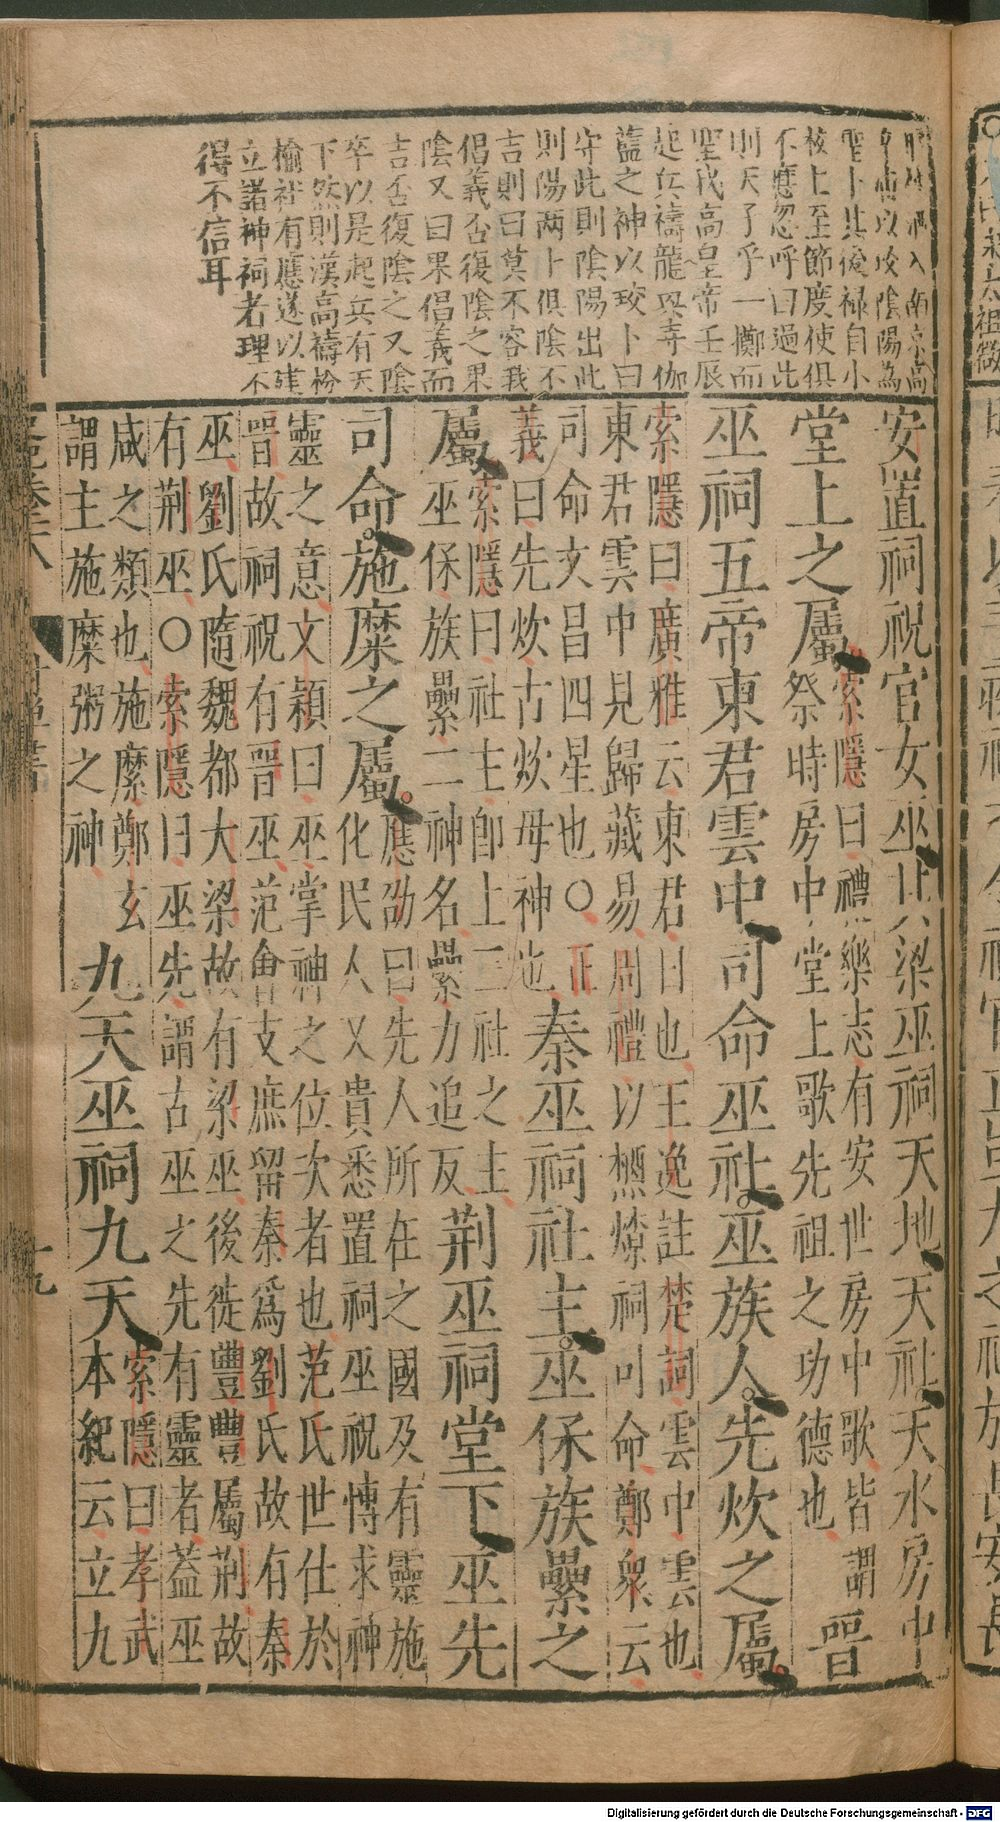 酒入南京高
廟以珓陰陽為
聖卜其後祿自小
校上至節度使俱
不應忽呼曰過此
則天子乎一擲而
聖我高皇帝壬辰
起兵禱龍興寺伽
藍之神以珓卜曰
守此則陰陽出此
則陽两卜俱陰不
吉則曰莫不容我
倡義否復陰之果
陰又曰果倡義而
吉否復陰之又陰
卒以是起兵有天
下然則漢高禱枌
榆社有應遂以建
立諸神祠者理不
得不信耳
安置祠祝官女巫其梁巫祠天地天社天水房中
堂上之屬
索隱曰禮樂志有安世房中歌皆謂
祭時房中堂上歌先祖之功德也
晉
巫祠五帝東君雲中司命巫社巫族人先炊之屬
索隱曰廣雅云東君日也王逸註楚詞雲中雲也
東君雲中見歸藏易周禮以槱燎祠司命鄭衆云
司命文昌四星也〇正
義曰先炊古炊母神也
秦巫祠社主巫保族纍之
屬
索隱曰社主即上三社之主
巫保族纍二神名纍力追反
荆巫祠堂下巫先
司命施糜之屬
應劭曰先人所在之國及有靈施
化民人又貴悉置祠巫祝慱求神
靈之意文穎曰巫掌神之位次者也范氏世仕於
晉故祠祝有晉巫范會支庶留秦爲劉氏故有秦
巫劉氏隨魏都大梁故有梁巫後徙豐豐屬荆故
有荆巫〇索隱曰巫先謂古巫之先有靈者蓋巫
咸之類也施糜鄭玄
謂主施糜粥之神
九天巫祠九天
索隱曰孝武
本紀云立九
Digitalisierung gefördert durch die Deutsche Forschungsgemeinschaft - DFG